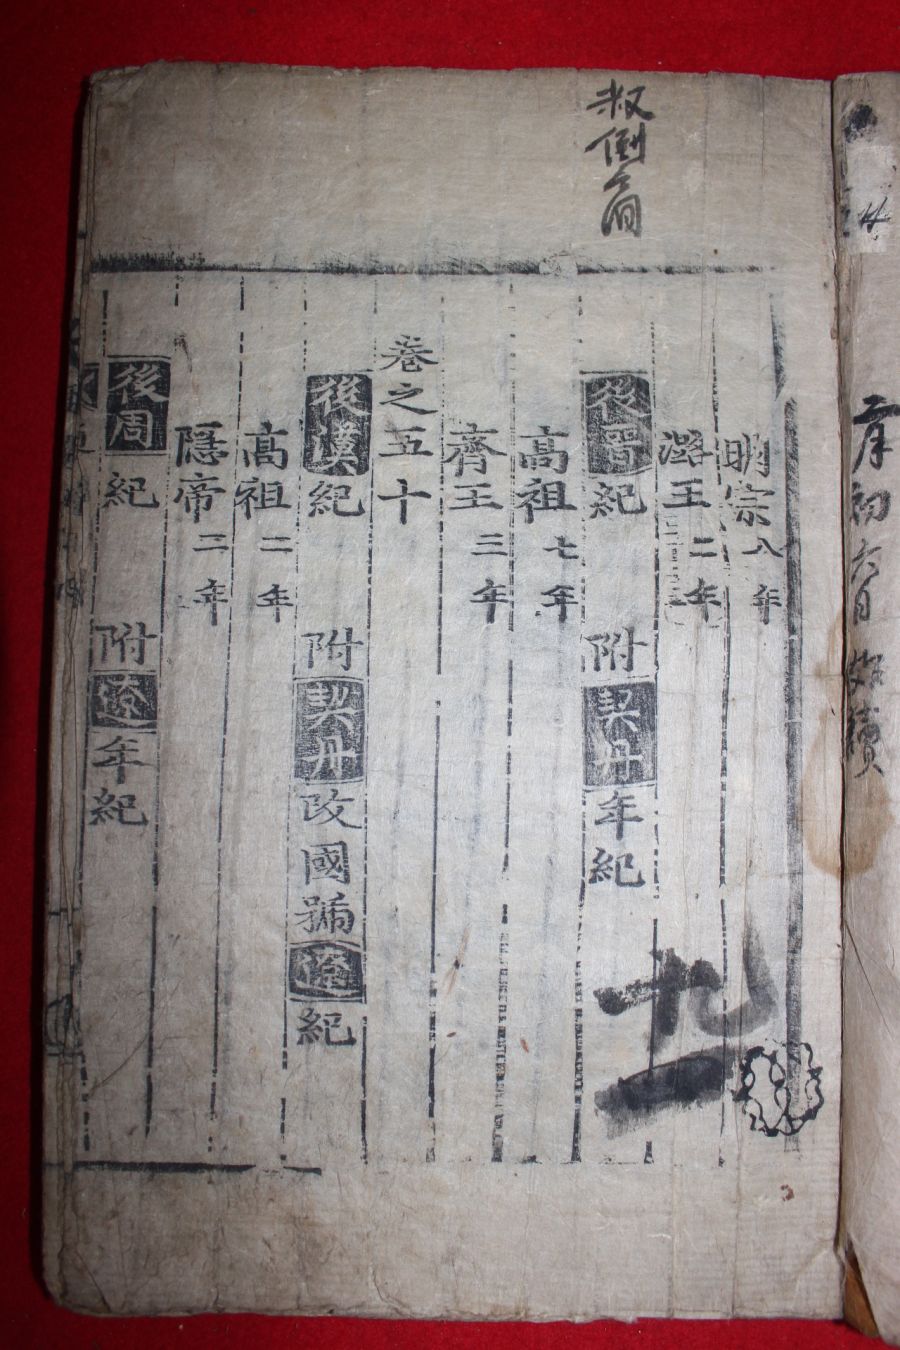 明宗八年
潞王二年
後晉紀 附契丹年紀
高祖七年
齊王三年
卷之五十
後漢紀 附契丹改國號遼紀
高祖二年
隱帝二年
後周紀 附遼年紀
九